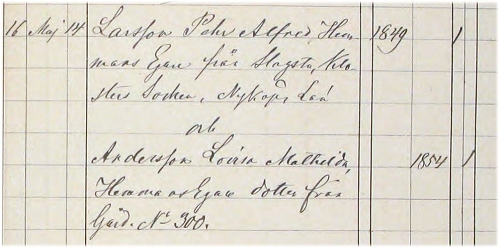 16 Maj 14 Larsson Pehr Alfred, Hem- 1849 1
mans Egare från Slagsta, Klo-
sters Socken, Nyköps Län
och
Andersson Lovisa Mathilda, 1854 1
HemmansEgare dotter från
Gård. No 300.